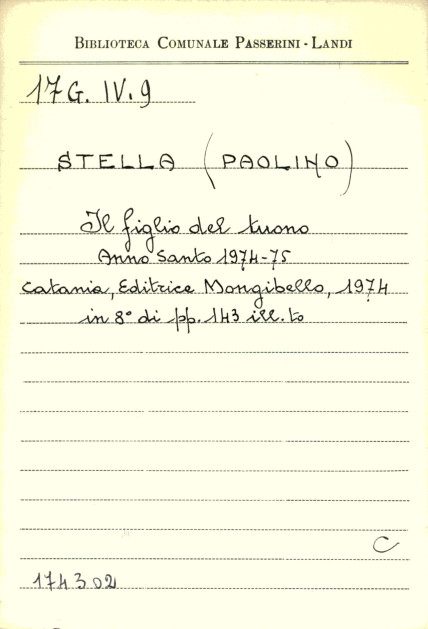 BIBLIOTECA COMUNALE PASSERINI - LANDI
17 G. IV. 9
STELLA (PAOLINO)
Il figlio del tuono
Anno Santo 1974-75
Catania, Editrice Mongibello, 1974
in 8° di pp. 143 ill.to
C
174302